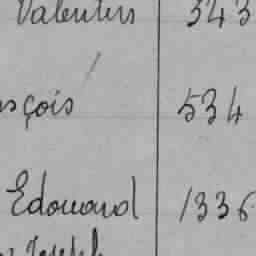 Valentin 343
sçois 534
Edouard 1336
Joseph